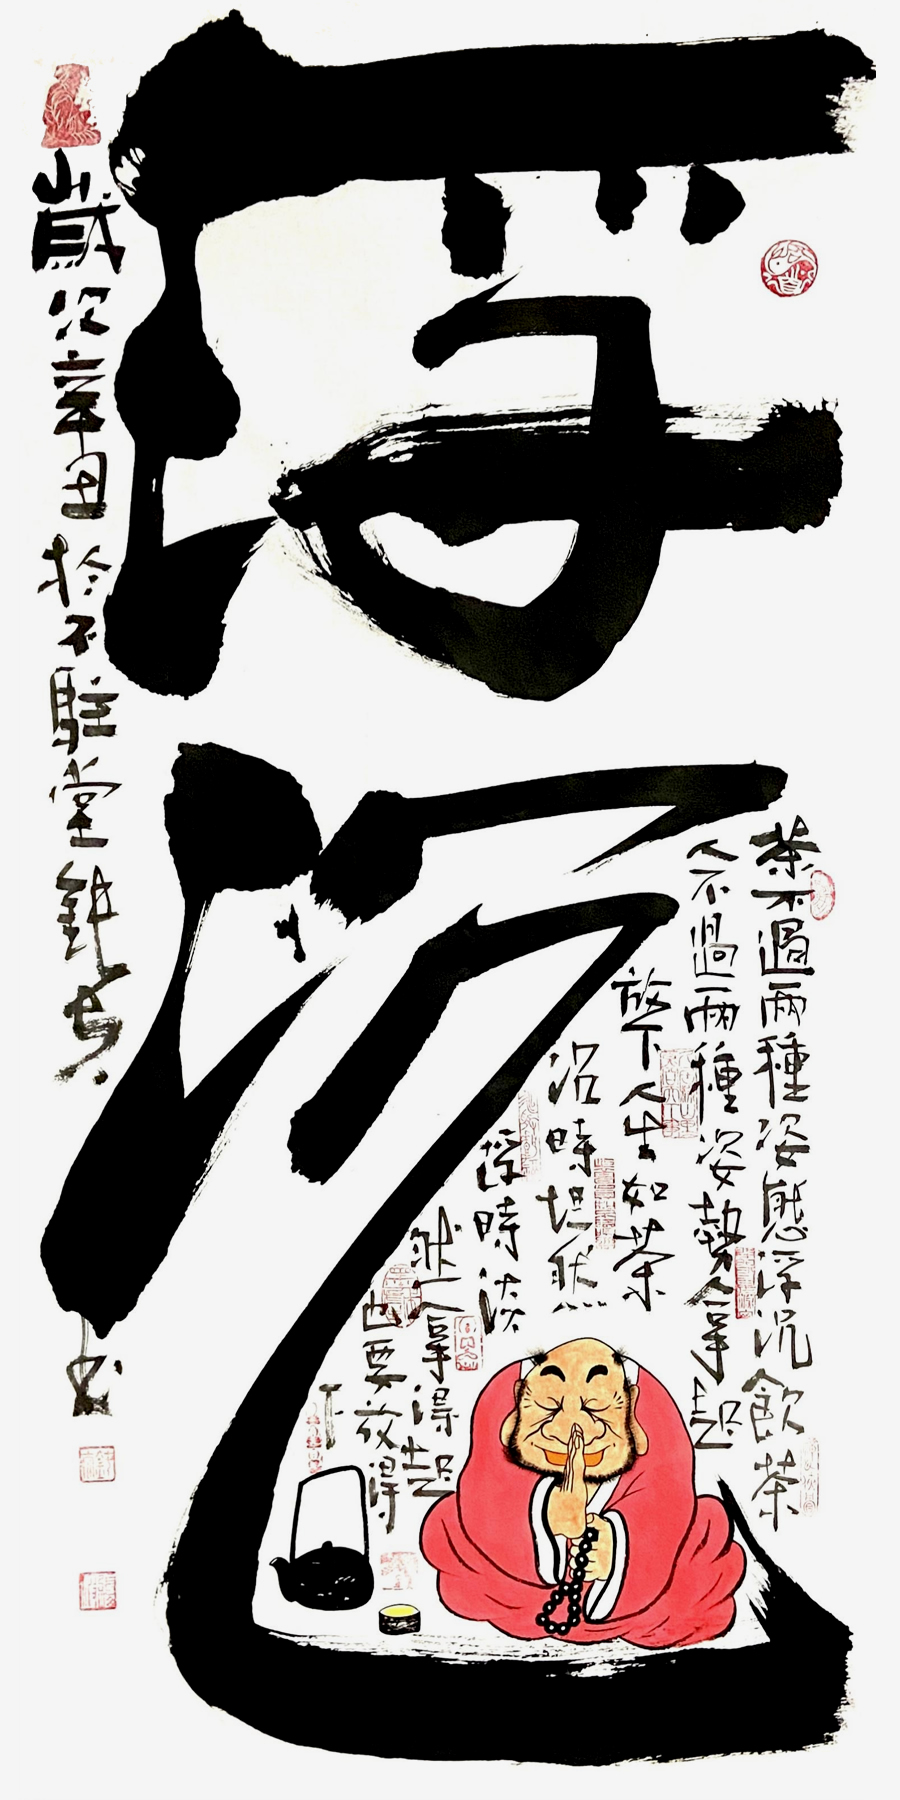 浮沉
茶不過兩種姿態浮沉飲茶
人不過兩種姿勢拿起
放下人生如茶
沉時坦然
浮時淡
然人拿得起
也要放得
下
歲次辛丑於不駐堂
書